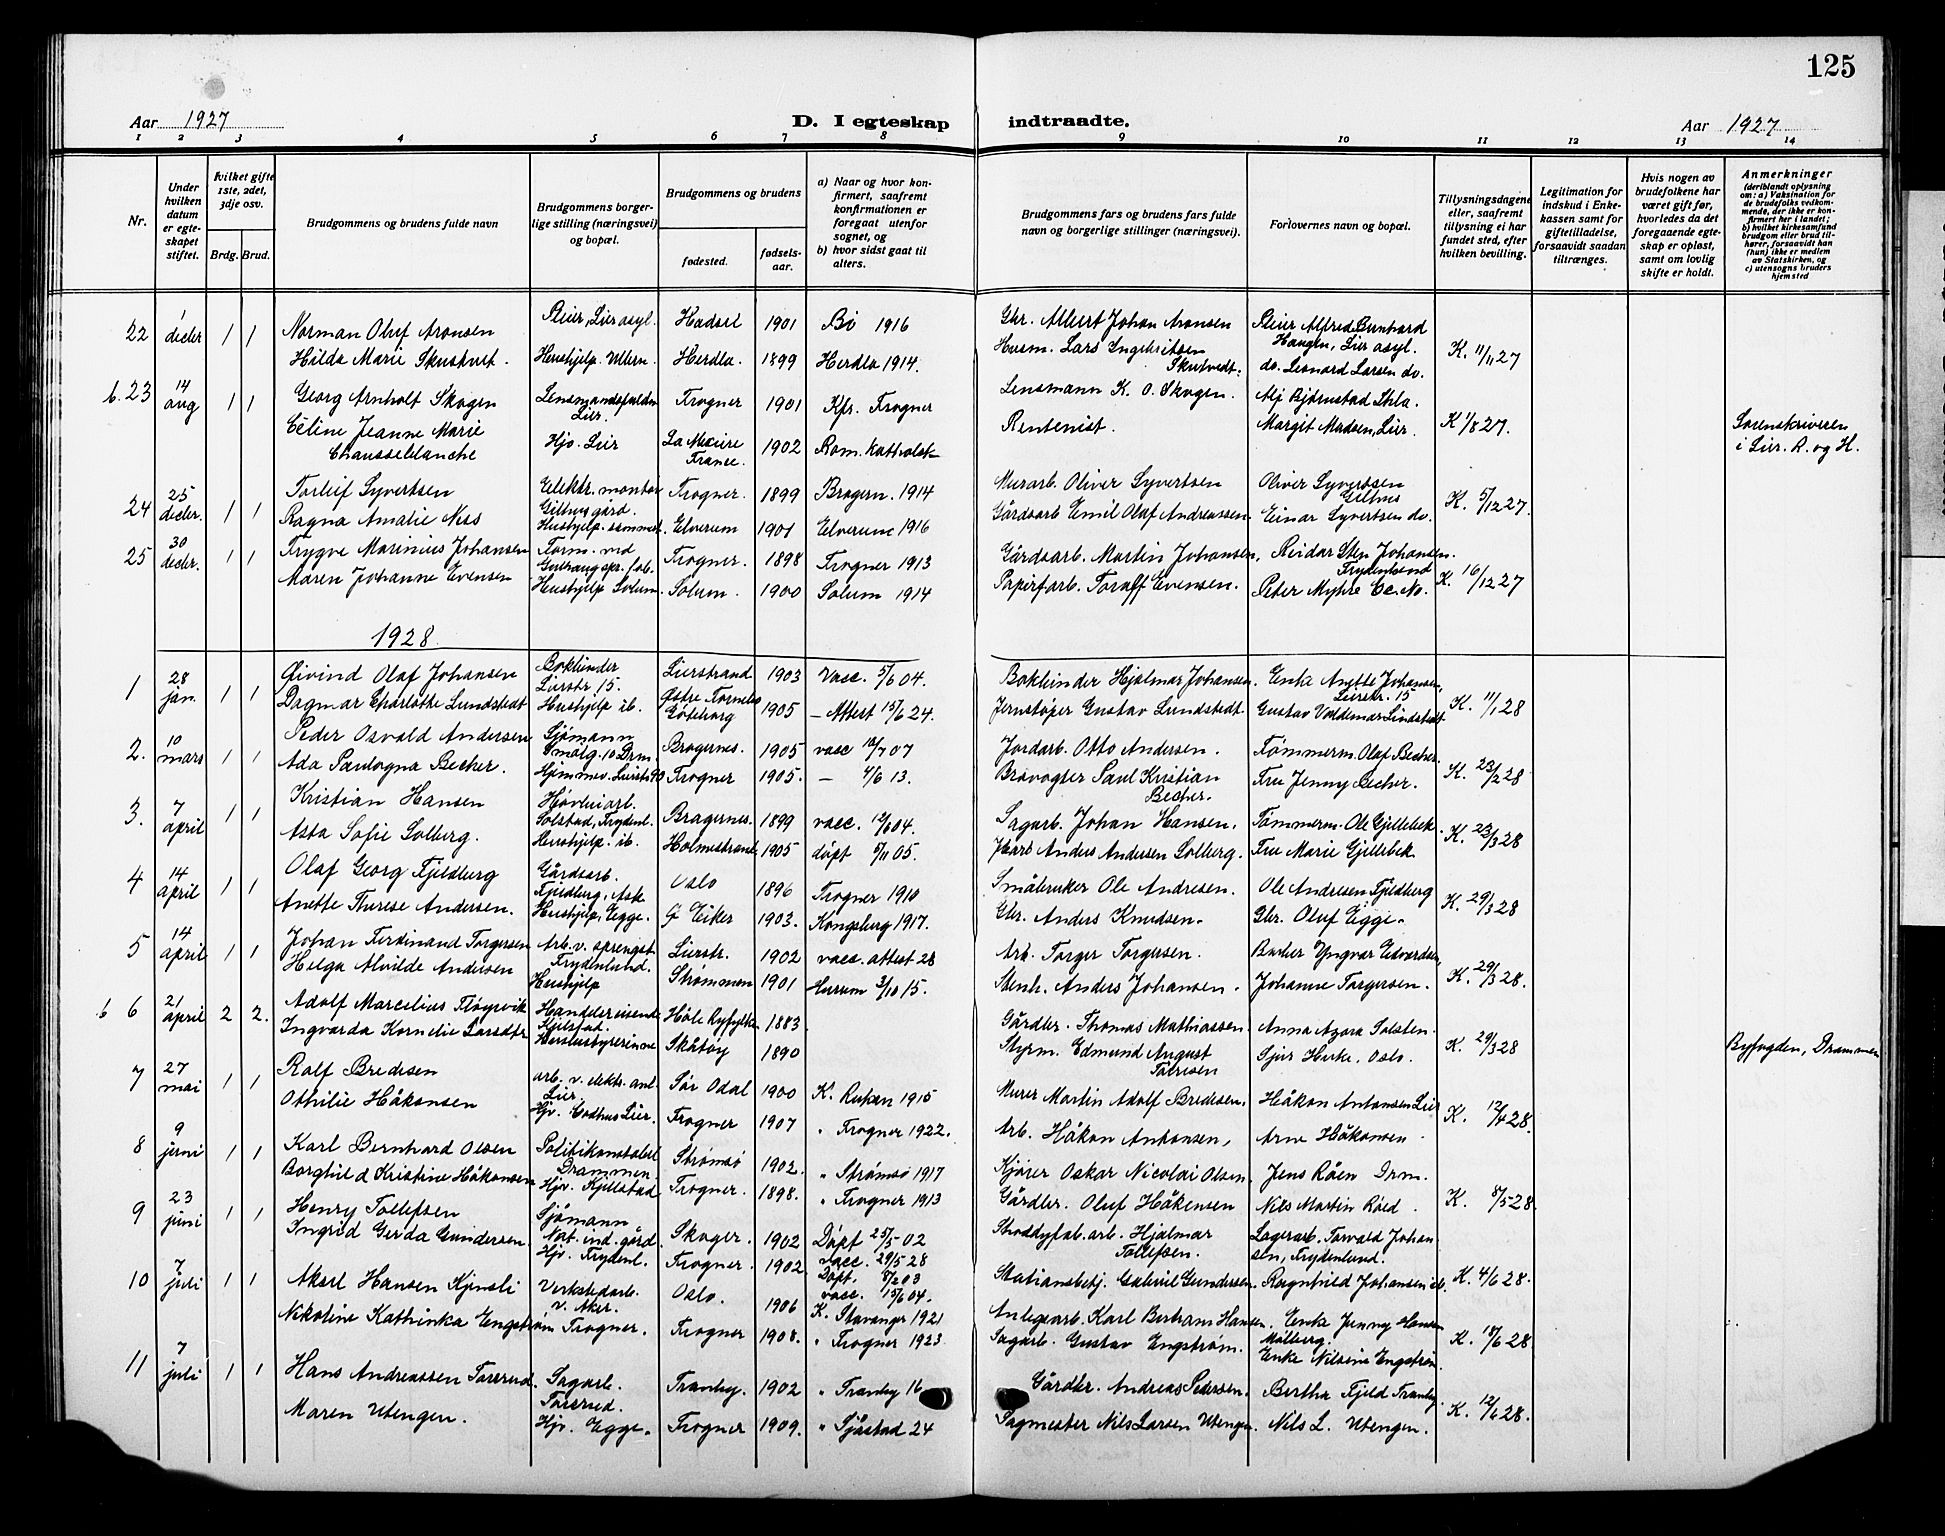 125
Aar 1927
D. I egteskap
indtraadte.
Aar 1927
1 2 3 4 5 6 7 8 9 10 11 12 13 14
Nr.
Under hvilken datum er egteskapet stiftet.
Hvilket gifte 1ste, 2det, 3dje osv.
Brdg. Brud.
Brudgommens og brudens fulde navn
Brudgommens borgerlige stilling (næringsvei) og bopæl.
Brudgommens og brudens
fødested.
fødselsaar.
a) Naar og hvor konfirmert, saafremt konfirmationen er foregaat utenfor sognet, og
b) hvor sidst gaat til alters.
Brudgommens fars og brudens fars fulde navn og borgerlige stillinger (næringsvei).
Forlovernes navn og bopæl.
Tillysningsdagene eller, saafremt tillysning ei har fundet sted, efter hvilken bevilling.
Legitimation for indskud i Enkekassen samt for giftetilladelse, forsaavidt saadan tiltrænges.
Hvis nogen av brudefolkene har været gift før, hvorledes da det foregaaende egteskap er opløst, samt om lovlig skifte er holdt.
Anmerkninger
(deriblandt oplysning om: a) Vaksination for de brudefolks vedkommende, der ikke er konfirmert her i landet; b) hvilket kirkesamfund brudgom eller brud tilhører, forsaavidt han (hun) ikke er medlem av Statskirken, og c) utensogns bruders hjemsted
22 1 decbr 1 1 Norman Oluf Aronsen Pleier, Lier asyl. Hadsel 1901 Bö 1916 Gbr. Albert Johan Aronsen Pleier Alfred Bernhard Haugen, Lier asyl. K. 11/11 27
Hilda Marie Skutvet. Hushjelp. Ullern. Herdla. 1899 Herdla 1914. Husm. Lars Ingebritsen Skutvedt. do. Leonard Larsen do.
b. 23 14 aug 1 1 Georg Arnholt Skogen Lensmandsfuldm. Lier. Frogner 1901 Kfr. Frogner Lensmann K. O. Skogen. Alf Bjørnstad K 1/8 27.
Céline Jeanne Marie Chausseblanche Hjv. Lier France. 1902 Rom. katholsk Rentenist. Margit Madsen, Lier. Sorenskriveren i Lier. R. og H.
24 25 decbr. 1 1 Torleif Syvertsen Elektr. montör Gilhus gård. Frogner. 1899 Bragern. 1914 Murarb. Oliver Syvertsen Oliver Syvertsen Gilhus K. 5/12 27.
Ragna Amalie Ness Hushjelp. sammest. Elverum 1901 Elverum 1916 Gårdsarb Emil Olaf Andreassen. Einar Syvertsen do.
25 30 decbr. 1 1 Trygve Marinius Johansen Form. ved Frogner. 1898 Frogner 1913 Gårdsarb. Martin Johansen, Reidar Sten Johansen. Frydenlund K. 16/12 27
Maren Johanne Evensen Hushjelp Solum. Solum. 1900 Solum 1914 Papirfarb. Toralf Evensen. Peter Myhre
1928
1 28 jan. 1 1 Øivind Olaf Johansen Bokbinder Lierstr. 15. Lierstrand 1903 Vacc. 5/6 04. Bokbinder Hjalmar Johansen. Enke Anette Johansen, Lierstr. 15 K. 11/1 28
Dagmar Charlotte Lundstedt Hushjelp ib. Göteborg 1905 – Attest 15/6 24. Jernstøper Gustav Lundstedt. Gustav Valdemar Lindstedt
2. 10 mars 1 1 Peder Osvald Andersen Sjömann Smalg. 10 Drm. Bragernes. 1905 vacc 18/7 07 Jordarb. Otto Andersen. Tömmerm. Olaf Becher. K. 23/2 28
Ada Becher. Hjemmev. Lierstr. 90 Frogner 1905. – 4/6 13. Brovogter Paul Kristian Becher. Fru Jenny Becher.
3. 7 april 1 1 Kristian Hansen Høvleriarb. Solstad, Frydenl. Bragernes. 1899 vacc. 12/6 04. Sagarb. Johan Hansen. Tømmerm. Ole Gjellebek. K. 23/3 28
Asta Sofie Solberg. Hushjelp. ib. Holmestrand 1905 døpt 5/11 05. Anders Andersen Solberg. Fru Marie Gjellebek
4 14 april 1 1 Olaf Georg Fjeldberg Gårdsarb. Fjeldberg, Ask. Oslo 1896 Frogner 1910 Småbruker Ole Andresen. Ole Andresen Fjeldberg K. 29/3 28
Anette Therese Andersen. Hushjelp, Egge. Ø Eiker 1903. Kongsberg 1917. Gbr. Anders Knudsen. Gbr. Oluf Egge.
5 14 april 1 1 Johan Ferdinand Torgersen Arb. v. sprengst. Frydenlund. Lierstr. 1902 vacc. attest 28 Arb. Torger Torgersen. Barber Yngvar Edvardsen, K. 29/3 28.
Helga Alvilde Andersen Hushjelp Strømmen 1901 Hurum 3/10 15. Stenh. Anders Johansen. Johanne Torgersen.
b 6 21 april 2 2. Adolf Marcelius Fløysvik Handelsreisende Kjelstad. Høle Ryfylke 1883. Gårdbr. Thomas Mathiassen. Anna Agora Solsten. K. 29/3 28
Ingvarda Kornelie Larsdtr Husbestyrerinne Skåtøy 1890 Styrm. Edmund August Tobisen Oslo. Byfogden, Drammen
7 27 mai 1 1 Rolf Bredesen arb. v. elektr. anl. Lier Sør Odal 1900 K. Rukan 1915 Murer Martin Adolf Bredesen. Håkon Antonsen Lier K. 12/4 28.
Othilie Håkonsen Hjv. Godhus Lier. Frogner 1907 " Frogner 1922. Arb. Håkon Antonsen, Arne Håkonsen
8 9 juni 1 1 Karl Bernhard Olsen Politikonstabel Drammen. Strømsö 1902. " Strømsø 1917 Kjører Oskar Nicolai Olsen. Jens Råen Drm. K. 8/5 28.
Borghild Kristine Håkonsen Hjv. Kjellstad Frogner. 1898. " Frogner 1913 Gårdbr. Oluf Håkensen Nils Martin Röed.
9 23 juni 1 1 Henry Tollefsen Sjømann Nøt. ind. gård. Skoger. 1902 Døpt 25/5 02 vacc. 29/5 28 Shoddyfab. arb. Hjalmar Tollefsen. Lagerarb. Torvald Johansen, Frydenlund. K. 4/6 28.
Ingrid Gerda Gundersen. Hjv. Frydenl. Frogner 1902 Døpt. 8/2 03 vacc. 15/6 04. Stationsbetj. Gabriel Gundersen. Ragnhild Johansen ib.
10 7 juli 1 1 Aksel Hansen Kjensli Verkstedarb. v. Aker. Oslo. 1906 K. Stavanger 1921 Anlegsarb. Karl Bertram Hansen. Enke Jenny Hansen Mölberg. K. 18/6 28
Nikoline Kathinka Engstrøm Frogner. Frogner 1908. " Frogner 1923 Sagarb. Gustav Engström. Enke Nilsine Engström.
11 7 juli 1 1 Hans Andreassen Tosserud. Sagarb. Tosserud. Tranby. 1902 " Tranby 16 Gårdbr. Andreas Pedersen. Bertha Fjeld Tranby. K. 12/6 28.
Maren Utengen. Hjv. Egge. Frogner 1909. " Sjåstad 24 Sagmester Nils Larsen Utengen. Nils L. Utengen.